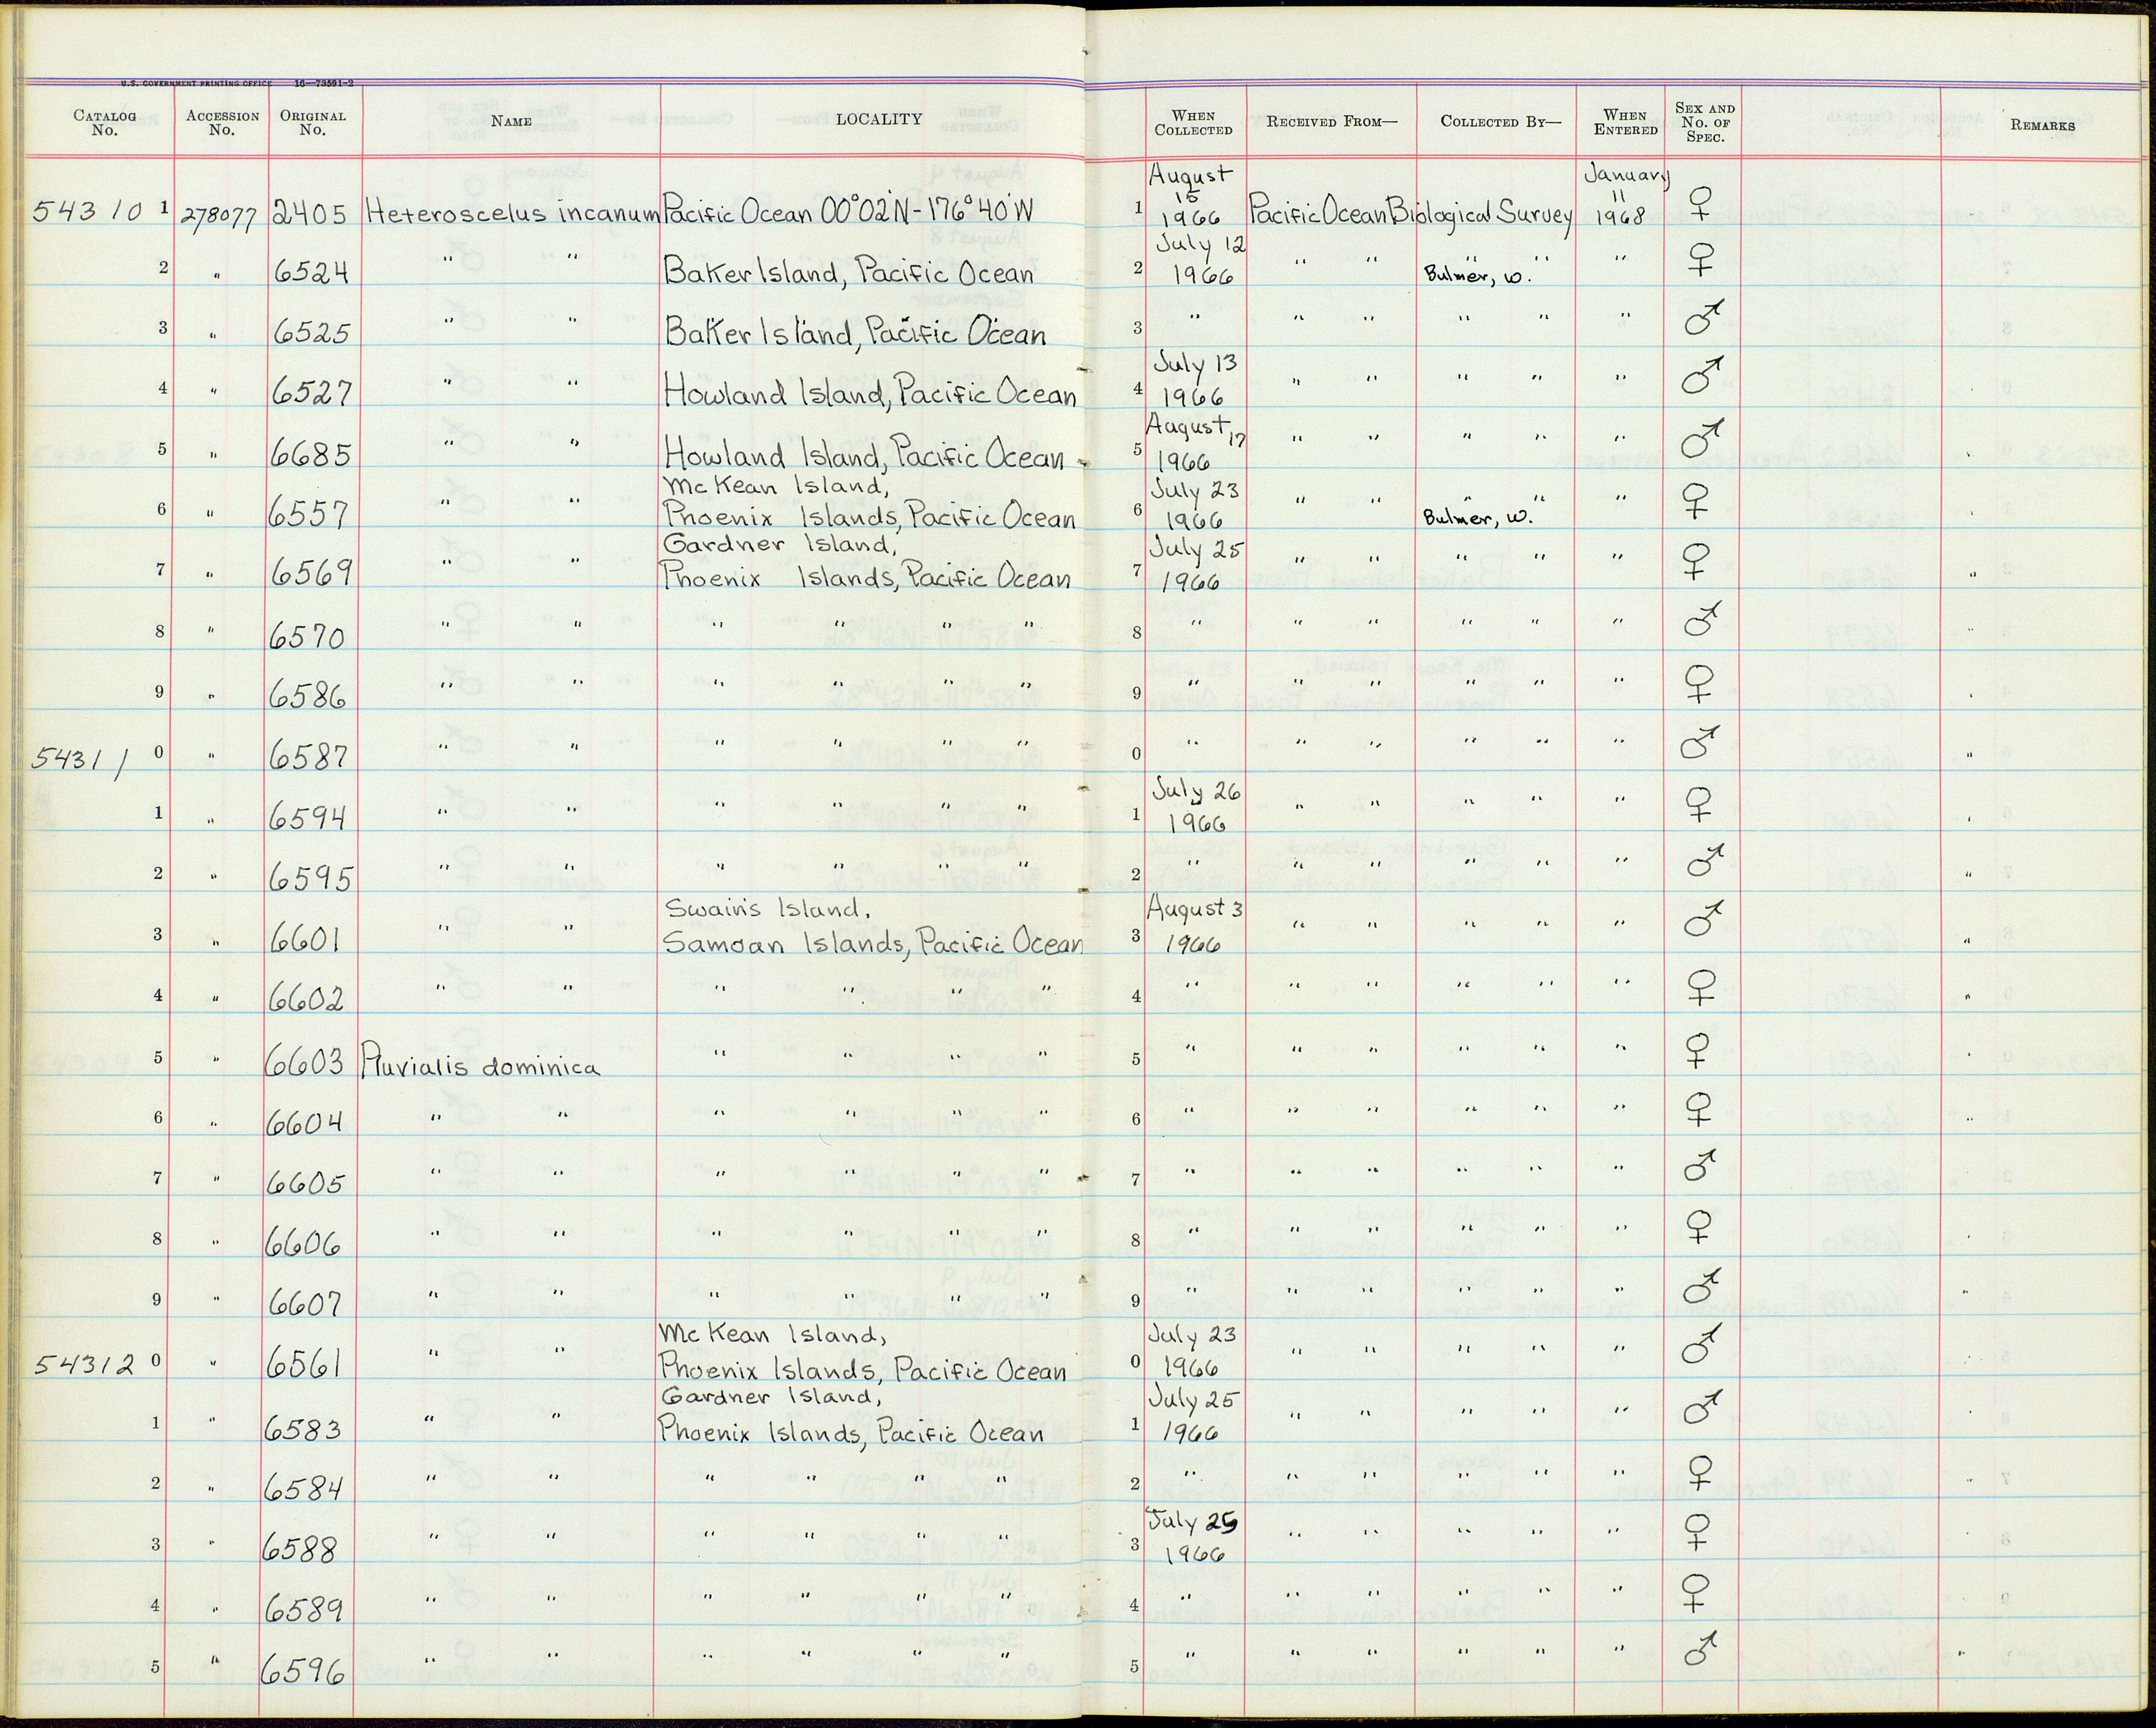 U.S. GOVERNMENT PRINTING OFFICE 16—73591-2
CATALOG No. ACCESSION No. ORIGINAL No. NAME LOCALITY WHEN COLLECTED RECEIVED FROM— COLLECTED BY— WHEN ENTERED SEX AND No. OF SPEC. REMARKS
54310 1 278077 2405 Heteroscelus incanum Pacific Ocean 00°02'N-176°40'W 1 August 15 1966 Pacific Ocean Biological Survey January 11 1968 ♀
2 " 6524 " " Baker Island, Pacific Ocean 2 July 12 1966 " " " " Bulmer, W. " ♀
3 " 6525 " " Baker Island, Pacific Ocean 3 " " " " " " ♂
4 " 6527 " " Howland Island, Pacific Ocean 4 July 13 1966 " " " " " ♂
5 " 6685 " " Howland Island, Pacific Ocean 5 August 17 1966 " " " " " ♂
6 " 6557 " " Mc Kean Island, Phoenix Islands, Pacific Ocean 6 July 23 1966 " " " " Bulmer, W. " ♀
7 " 6569 " " Gardner Island, Phoenix Islands, Pacific Ocean 7 July 25 1966 " " " " " ♀ "
8 " 6570 " " " " " " 8 " " " " " " ♂
9 " 6586 " " " " " " 9 " " " " " " ♀
54311 0 " 6587 " " " " " " 0 " " " " " " ♂ "
1 " 6594 " " " " " " 1 July 26 1966 " " " " " ♀
2 " 6595 " " " " " " 2 " " " " " " ♂ "
3 " 6601 " " Swain's Island, Samoan Islands, Pacific Ocean 3 August 3 1966 " " " " " ♂ "
4 " 6602 " " " " " " 4 " " " " " " ♀ "
5 " 6603 Pluvialis dominica " " " " 5 " " " " " " ♀
6 " 6604 " " " " " " 6 " " " " " " ♀ "
7 " 6605 " " " " " " 7 " " " " " " ♂
8 " 6606 " " " " " " 8 " " " " " " ♀
9 " 6607 " " " " " " 9 " " " " " " ♂ "
54312 0 " 6561 " " Mc Kean Island, Phoenix Islands, Pacific Ocean 0 July 23 1966 " " " " " ♂
1 " 6583 " " Gardner Island, Phoenix Islands, Pacific Ocean 1 July 25 1966 " " " " " ♂
2 " 6584 " " " " " " 2 " " " " " " ♀
3 " 6588 " " " " " " 3 July 25 1966 " " " " " ♀
4 " 6589 " " " " " " 4 " " " " " " ♀
5 " 6596 " " " " " " 5 " " " " " " ♂ "